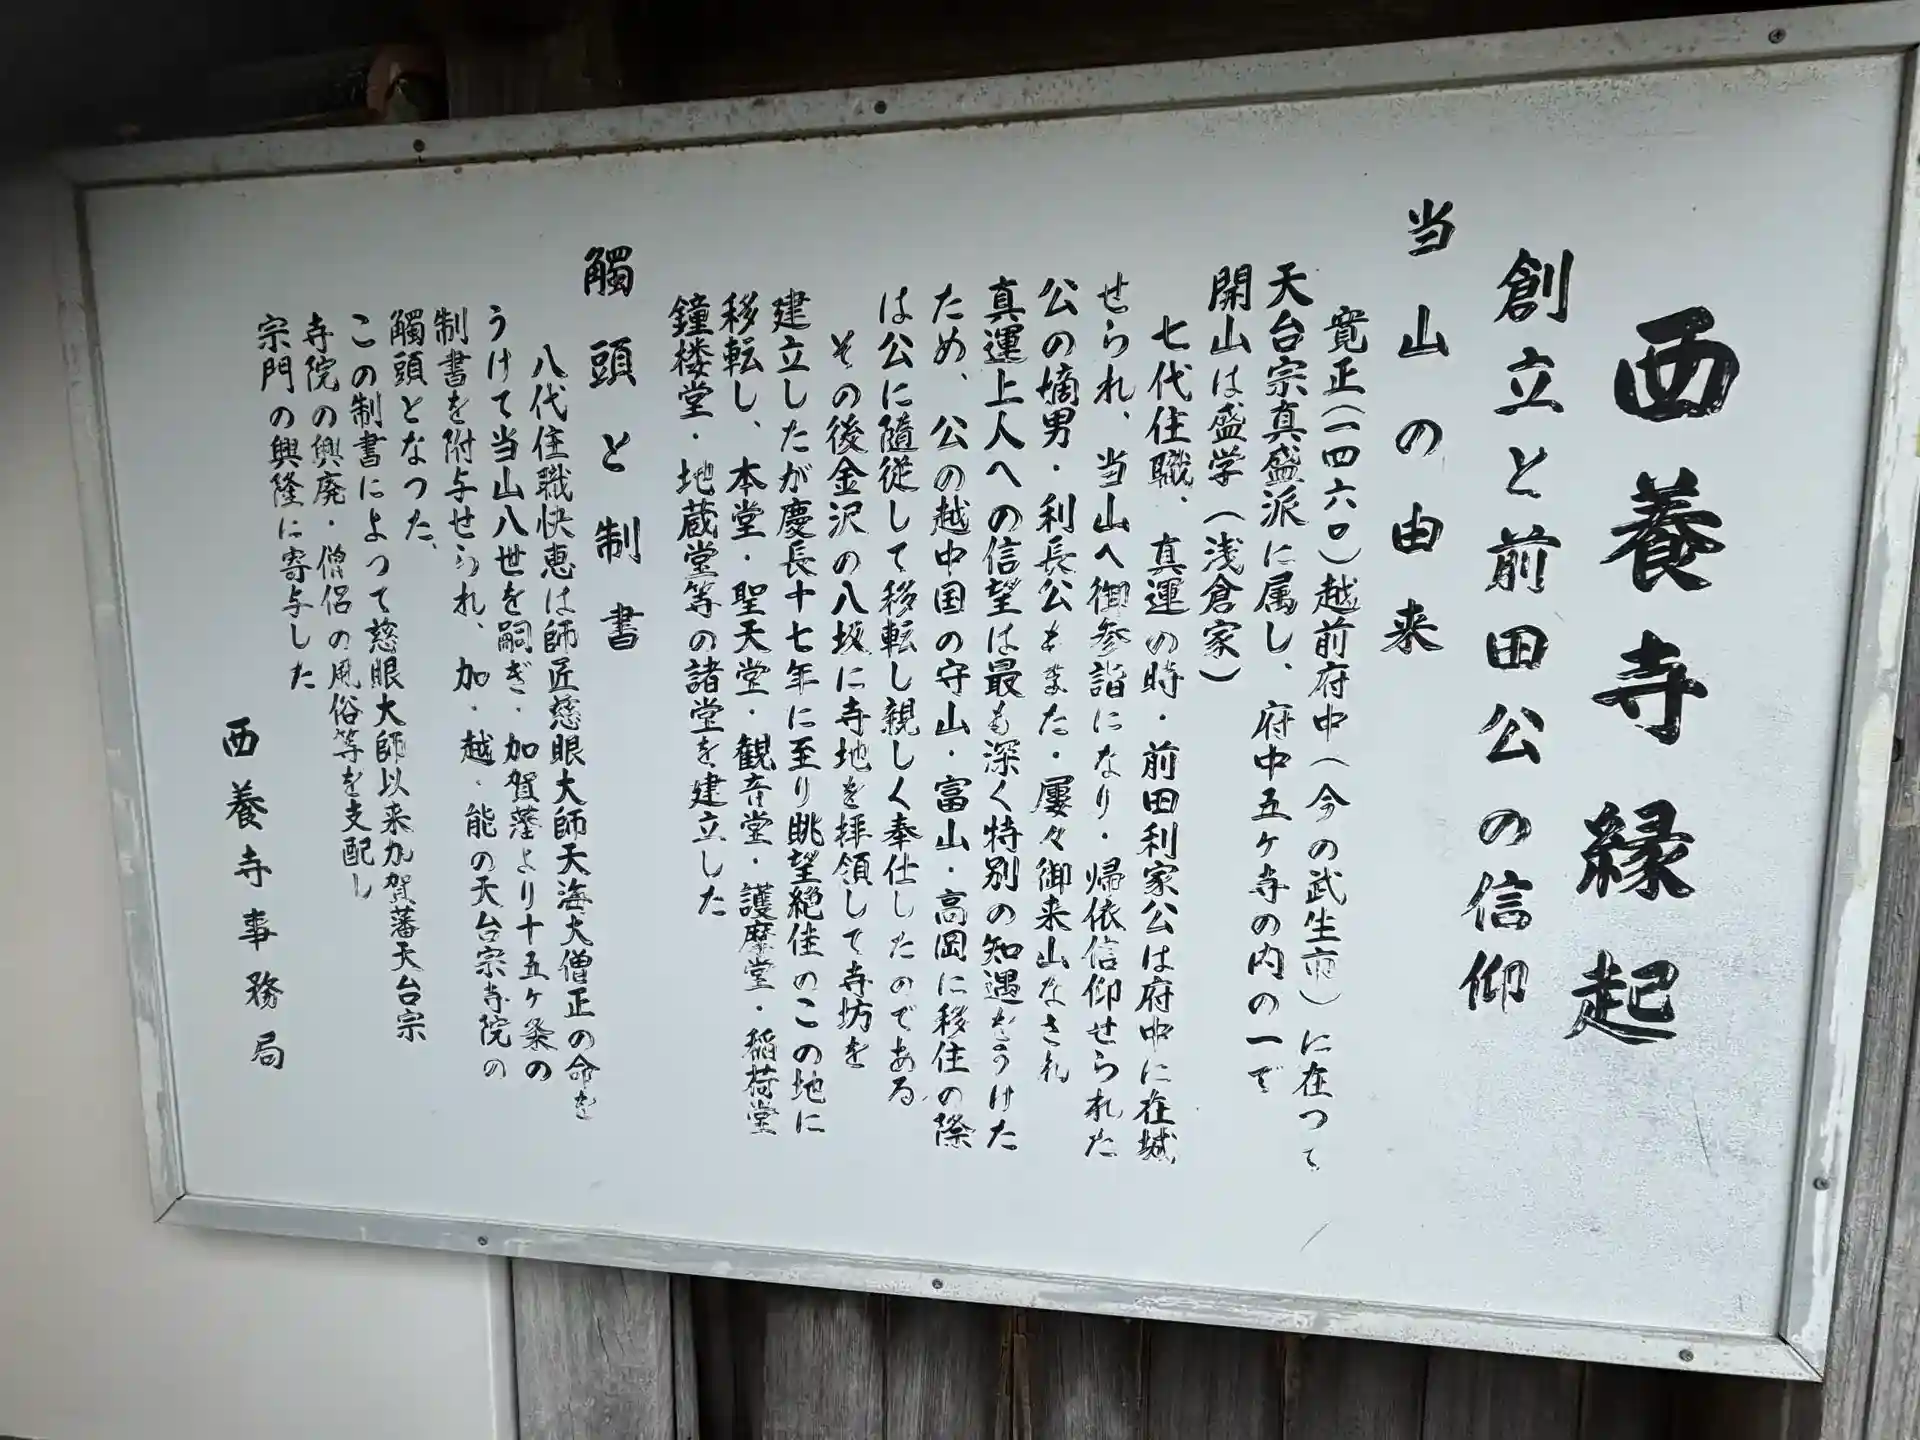 西養寺縁起
創立と前田公の信仰
当山の由来
寛正(一四六〇)越前府中(今の武生市)に在つて
天台宗真盛派に属し、府中五ヶ寺の内の一で
開山は盛学(浅倉家)
七代住職、真運の時・前田利家公は府中に在城
せられ、当山へ御参詣になり・帰依信仰せられた
公の嫡男・利長公もまた・屢々御来山なされ
真運上人への信望は最も深く特別の知遇をうけた
ため、公の越中国の守山・富山・高岡に移住の際
は公に随従して移転し親しく奉仕したのである
その後金沢の八坂に寺地を拝領して寺坊を
建立したが慶長十七年に至り眺望絶佳のこの地に
移転し、本堂・聖天堂・観音堂・護摩堂・稲荷堂
鐘楼堂・地蔵堂等の諸堂を建立した
觸頭と制書
八代住職快恵は師匠慈眼大師天海大僧正の命を
うけて当山八世を嗣ぎ・加賀藩より十五ヶ条の
制書を附与せられ、加・越・能の天台宗寺院の
觸頭となつた、
この制書によつて慈眼大師以来加賀藩天台宗
寺院の興廃・僧侶の風俗等を支配し
宗門の興隆に寄与した
西養寺事務局